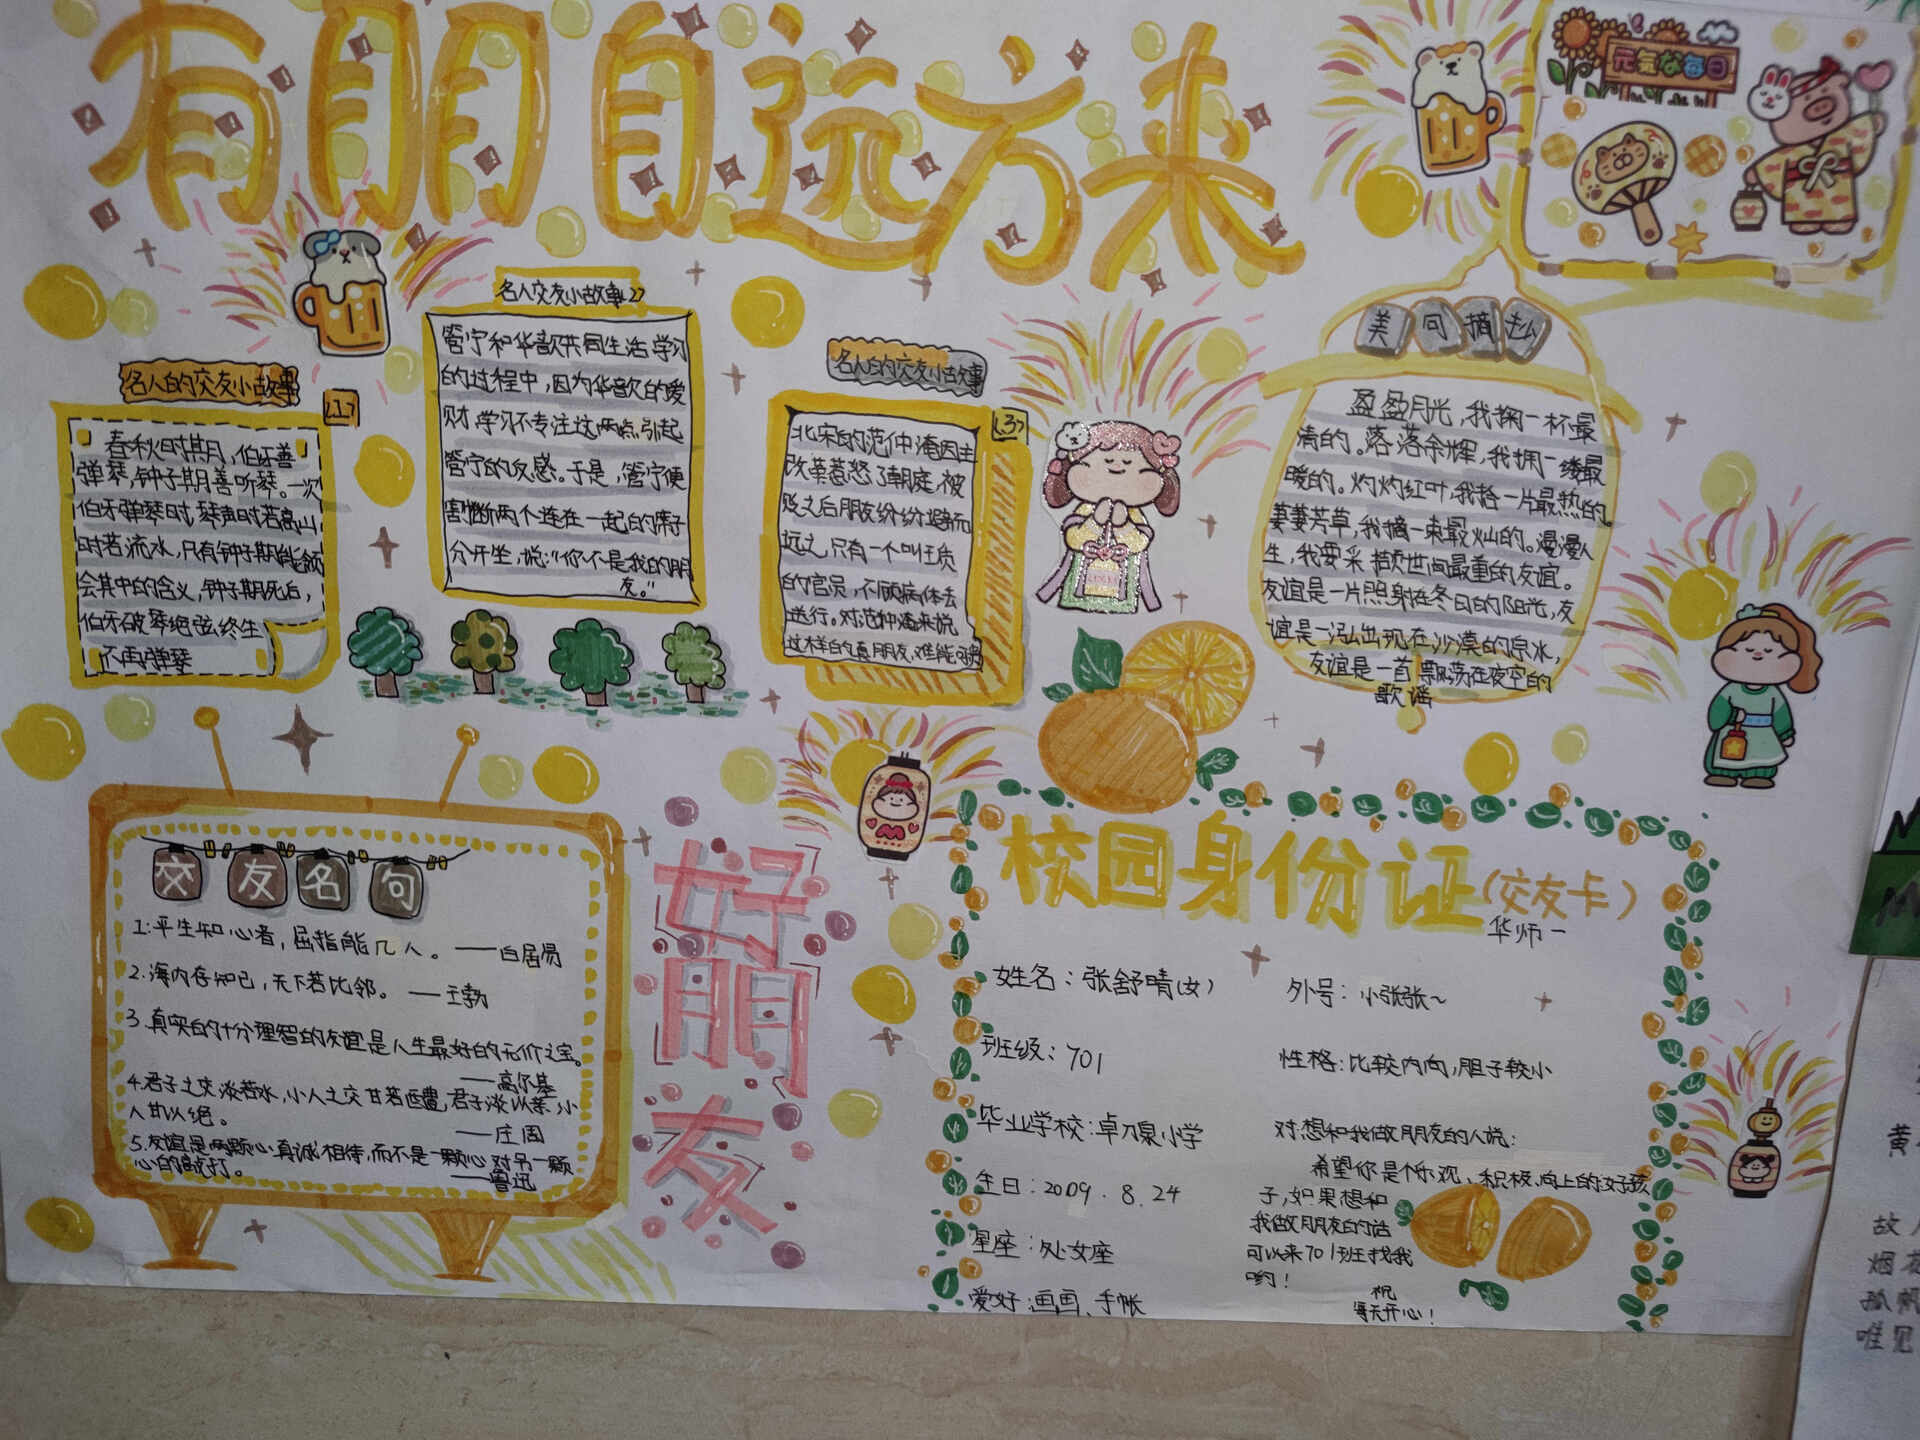 有朋自远方来
元気な每日
名人的交友小故事
<1>
春秋时期，伯牙善
弹琴，钟子期善听琴。一次
伯牙弹琴时，琴声时若高山
时若流水，只有钟子期能领
会其中的含义，钟子期死后，
伯牙破琴绝弦，终生
不再弹琴
名人交友小故事<2>
管宁和华歆共同生活，学习
的过程中，因为华歆的爱
财，学习不专注这两点，引起
管宁的反感。于是，管宁便
割断两个连在一起的席子
分开坐，说：“你不是我的朋
友。”
名人的交友小故事
<3>
北宋的范仲淹因主
改革惹怒了朝廷，被
贬之后朋友纷纷避而
远之，只有一个叫王质
的官员，不顾病体去
送行。对范仲淹来说
这样的真朋友，难能可贵
美句摘抄
盈盈月光，我掬一杯最
清的。落落余辉，我拥一缕最
暖的。灼灼红叶，我拾一片最热的。
萋萋芳草，我摘一束最灿的。漫漫人
生，我要采撷世间最重的友谊。
友谊是一片照射在冬日的阳光，友
谊是一泓出现在沙漠的泉水，
友谊是一首飘荡在夜空的
歌谣
交友名句
1.平生知心者，屈指能几人。——白居易
2.海内存知己，天下若比邻。——王勃
3.真实的十分理智的友谊是人生最好的无价之宝。
——高尔基
4.君子之交淡若水，小人之交甘若醴，君子淡以亲，小
人甘以绝。
——庄周
5.友谊是两颗心真诚相待，而不是一颗心对另一颗
心的敲打。
——鲁迅
好朋友
校园身份证（交友卡）
华师一
姓名：张舒晴（女）
外号：小张张~
班级：701
性格：比较内向，胆子较小
毕业学校：卓刀泉小学
对想和我做朋友的人说：
生日：2009.8.24
希望你是个乐观、积极、向上的女孩
子，如果想和
我做朋友的话
可以来701班找我
哟！
祝
每天开心！
星座：处女座
爱好：画画、手帐
黄
故人
烟花
孤帆
唯见